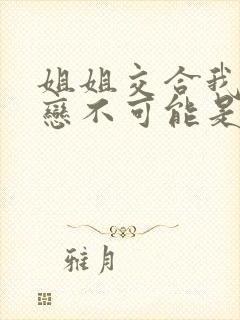 姐姐交合我
戀不可能是
雅月